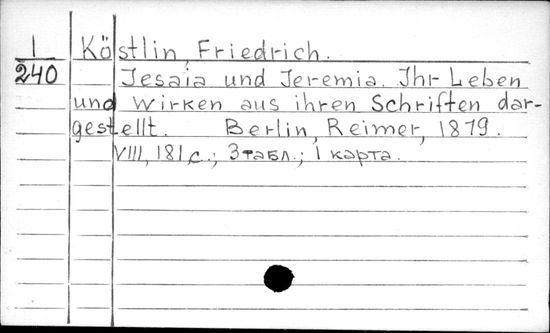 1 Köstlin, Friedrich.
240 Jesaia und Jeremia. Ihr Leben
und Wirken aus ihren Schriften dar-
gestellt. Berlin, Reimer, 1879.
VIII, 181 с.; 3 табл.; 1 карта.